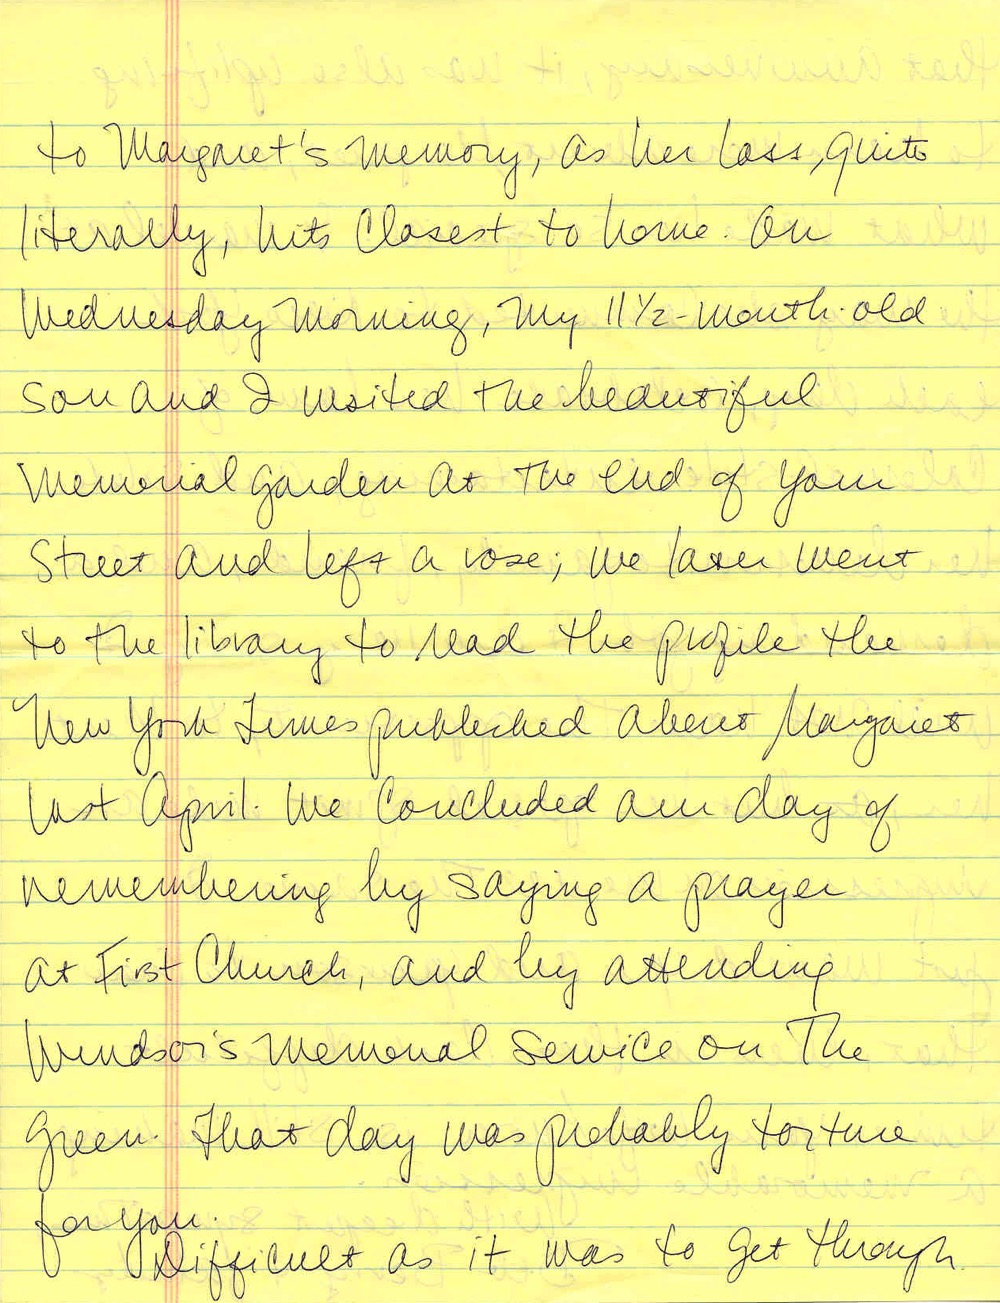 to Margaret's memory, as her loss, quite
literally, hits closest to home. On
Wednesday morning, my 11½-month-old
son and I visited the beautiful
memorial garden at the end of your
street and left a rose; we later went
to the library to read the profile the
New York Times published about Margaret
last April. We concluded our day of
remembering by saying a prayer
at First Church, and by attending
Windsor's memorial service on the
green. That day was probably torture
for you.
Difficult as it was to get through